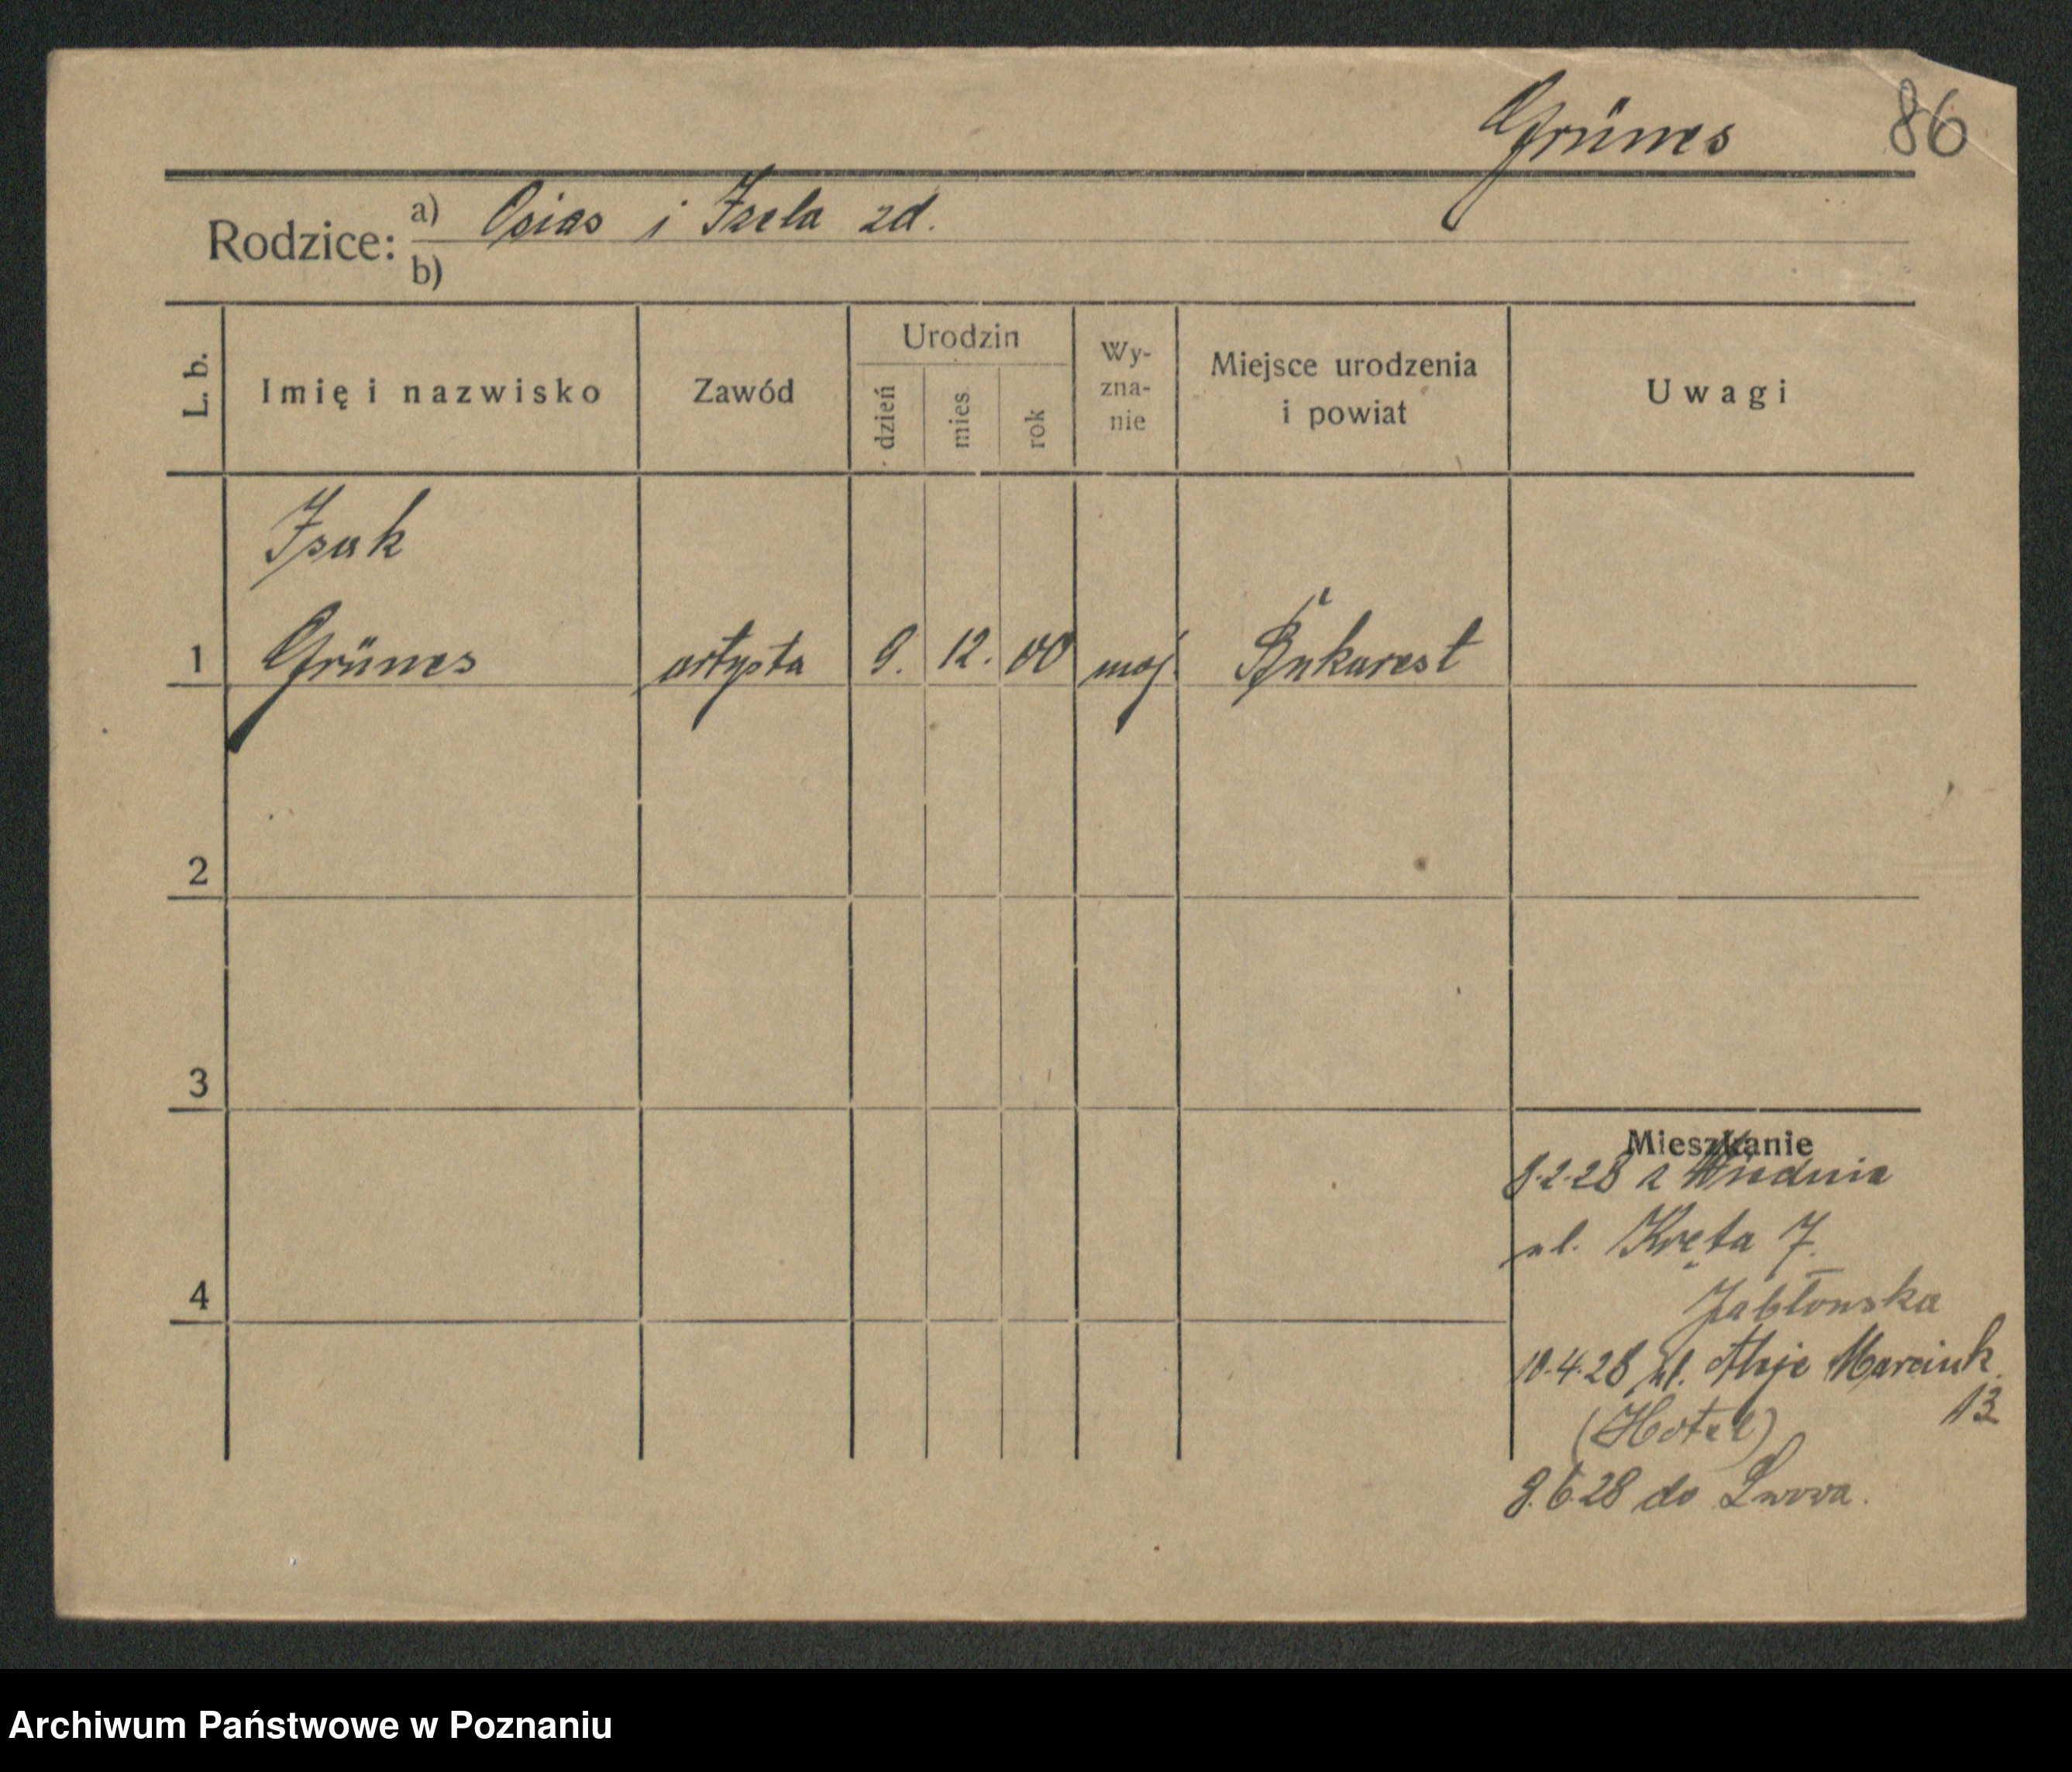 Grünes 86
Rodzice: a) Osias i Izela zd.
b)
L. b. Imię i nazwisko Zawód Urodzin dzień mies. rok Wy-zna-nie Miejsce urodzenia i powiat Uwagi
Isak
1 Grünes artysta 9. 12. 00 moj. Bukarest
2
3
Mieszkanie
8.2.28 z Wiednia
ul. Kręta 7.
4
Jabłonska
10.4.28 ul. Aleje Marcink.
13
(Hotel)
9.6.28 do Lwowa.
Archiwum Państwowe w Poznaniu